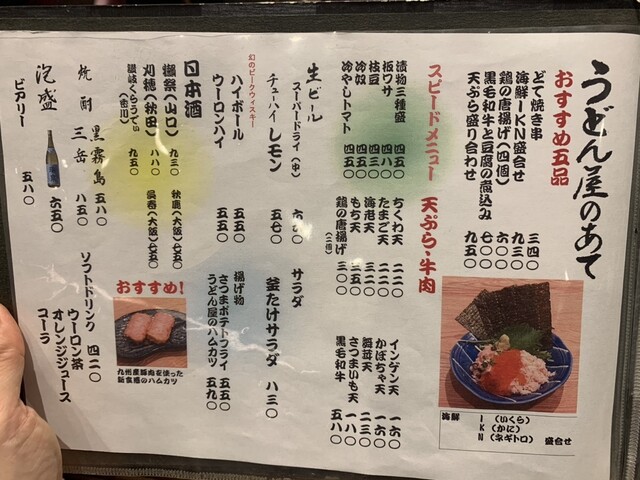 うどん屋のあて
おすすめ五品
どて焼き串 三四〇
海鮮IKN盛合せ 九三〇
鶏の唐揚げ(四個) 六〇〇
黒毛和牛と豆腐の煮込み 七〇〇
天ぷら盛り合わせ 九五〇
海鮮
I(いくら)
K(かに)
N(ネギトロ) 盛合せ
スピードメニュー
漬物三種盛 四五〇
板ワサ 四五〇
枝豆 四三〇
冷奴 四五〇
冷やしトマト 四五〇
天ぷら・牛肉
ちくわ天 二二〇
たまご天 二二〇
海老天 二八〇
もち天 三五〇
鶏の唐揚げ(二個) 三〇〇
インゲン天 一六〇
かぼちゃ天 一六〇
舞茸天 二三〇
さつまいも天 一八〇
黒毛和牛 五八〇
生ビール
スーパードライ(中)
チューハイ レモン 五七〇
幻のピークウィスキー
ハイボール 五五〇
ウーロンハイ 五五〇
サラダ
釜たけサラダ 八三〇
揚げ物
さつまポテトフライ 五五〇
うどん屋のハムカツ 五九〇
日本酒
獺祭(山口) 九三〇
刈穂(秋田) 八八〇
讃岐くらうでぃ(香川) 九五〇
秋鹿(大阪) 七五〇
呉春(大阪) 七五〇
おすすめ!
九州産豚肉を使った
新食感のハムカツ
焼酎
黒霧島 五八〇
三岳 八五〇
泡盛 六五〇
ビアリー 五八〇
ソフトドリンク 四二〇
ウーロン茶
オレンジジュース
コーラ